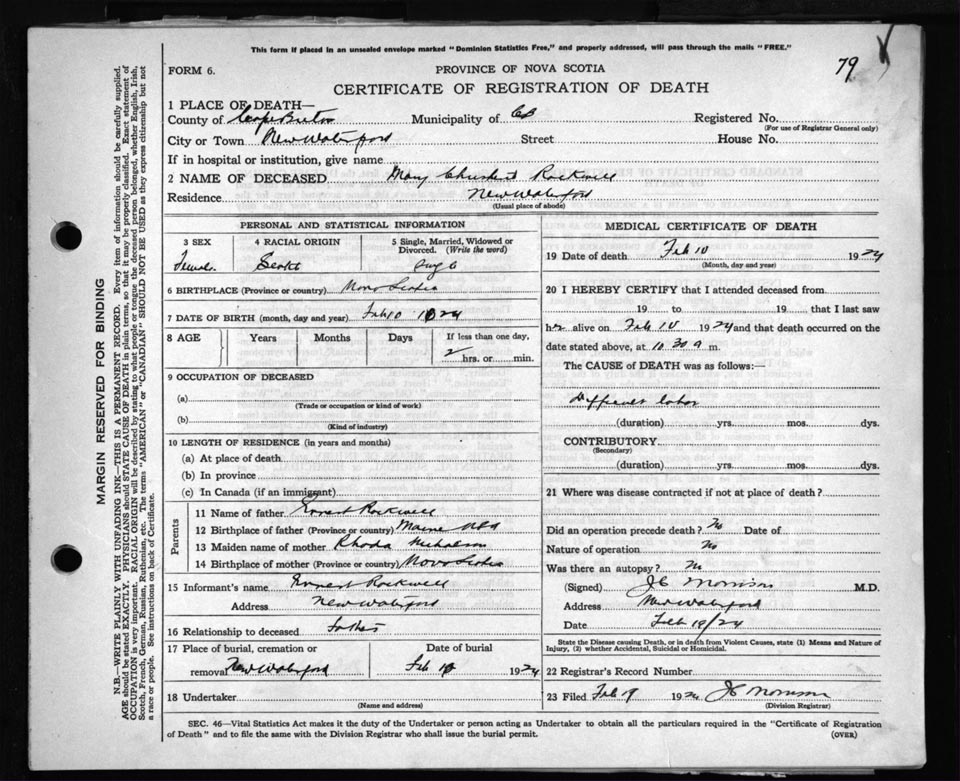 This form if placed in an unsealed envelope marked "Dominion Statistics Free," and properly addressed, will pass through the mails "FREE."
79
FORM 6.
PROVINCE OF NOVA SCOTIA
CERTIFICATE OF REGISTRATION OF DEATH
1 PLACE OF DEATH—
County of Cape Breton Municipality of CB Registered No.
(For use of Registrar General only)
City or Town New Waterford Street House No.
If in hospital or institution, give name
2 NAME OF DECEASED Mary Rockwell
Residence New Waterford
(Usual place of abode)
PERSONAL AND STATISTICAL INFORMATION
3 SEX 4 RACIAL ORIGIN 5 Single, Married, Widowed or Divorced. (Write the word)
Female Scotch Single
6 BIRTHPLACE (Province or country) Nova Scotia
7 DATE OF BIRTH (month, day and year) Feb 10 1924
8 AGE Years Months Days If less than one day,
2 hrs. or min.
9 OCCUPATION OF DECEASED
(a)
(Trade or occupation or kind of work)
(b)
(Kind of industry)
10 LENGTH OF RESIDENCE (in years and months)
(a) At place of death
(b) In province
(c) In Canada (if an immigrant)
Parents
11 Name of father Ernest Rockwell
12 Birthplace of father (Province or country) Maine USA
13 Maiden name of mother Rhoda Nicholson
14 Birthplace of mother (Province or country) Nova Scotia
15 Informant's name Ernest Rockwell
Address New Waterford
16 Relationship to deceased father
17 Place of burial, cremation or removal Date of burial
New Waterford Feb 10 1924
18 Undertaker
(Name and address)
MEDICAL CERTIFICATE OF DEATH
19 Date of death Feb 10 1924
(Month, day and year)
20 I HEREBY CERTIFY that I attended deceased from
19 to 19 that I last saw
her alive on Feb 10 1924 and that death occurred on the
date stated above, at 10 30 a m.
The CAUSE of DEATH was as follows:—
Difficult labor
(duration) yrs. mos. dys.
CONTRIBUTORY
(Secondary)
(duration) yrs. mos. dys.
21 Where was disease contracted if not at place of death?
Did an operation precede death? No Date of
Nature of operation No
Was there an autopsy? No
(Signed) JC Morrison M.D.
Address New Waterford
Date Feb 19/24
State the Disease causing Death, or in death from Violent Causes, state (1) Means and Nature of Injury, (2) whether Accidental, Suicidal or Homicidal.
22 Registrar's Record Number
23 Filed Feb 19 1924 JC Morrison
(Division Registrar)
SEC. 46—Vital Statistics Act makes it the duty of the Undertaker or person acting as Undertaker to obtain all the particulars required in the "Certificate of Registration
of Death" and to file the same with the Division Registrar who shall issue the burial permit. (OVER)
MARGIN RESERVED FOR BINDING
N.B.—WRITE PLAINLY WITH UNFADING INK—THIS IS A PERMANENT RECORD. Every item of information should be carefully supplied.
AGE should be stated EXACTLY. PHYSICIANS should STATE CAUSE OF DEATH in plain terms, so that it may be properly classified. Exact statement of
OCCUPATION is very important. RACIAL ORIGIN will be described by stating to what people or tongue the deceased person belonged, whether English, Irish,
Scotch, French, German, Russian, Ruthenian, etc. The terms "AMERICAN" or "CANADIAN" SHOULD NOT BE USED as they express citizenship but not
a race or people. See instructions on back of Certificate.